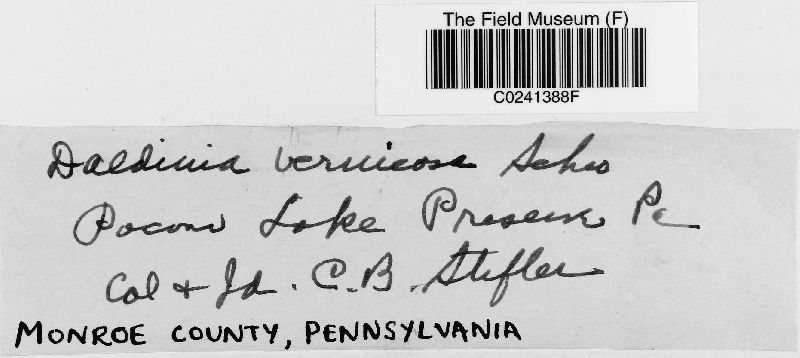 The Field Museum (F)
C0241388F
Daldinia vernicosa Schw
Pocono Lake Preserve Pa
Col & Id. C.B. Stifler
MONROE COUNTY, PENNSYLVANIA